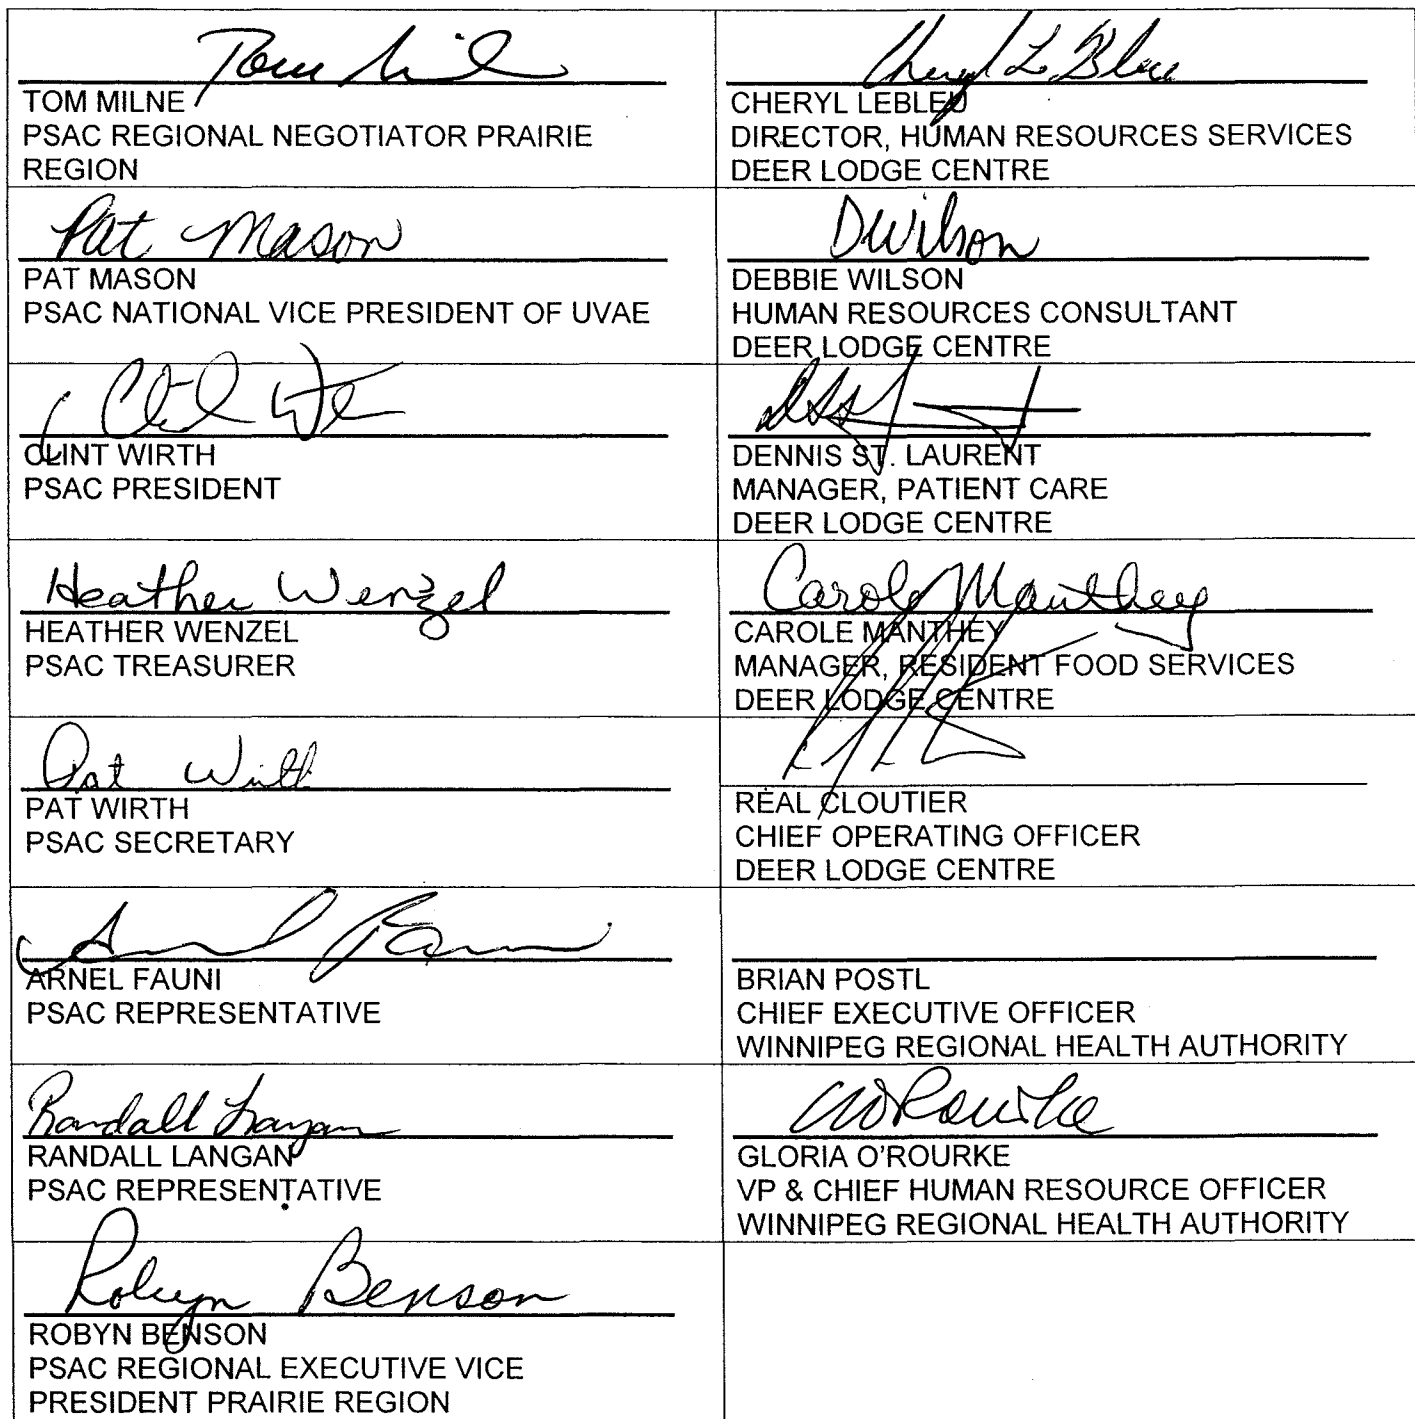 Tom Mil
TOM MILNE
PSAC REGIONAL NEGOTIATOR PRAIRIE
REGION
Cheryl LeBleu
CHERYL LEBLEU
DIRECTOR, HUMAN RESOURCES SERVICES
DEER LODGE CENTRE
Pat Mason
PAT MASON
PSAC NATIONAL VICE PRESIDENT OF UVAE
DWilson
DEBBIE WILSON
HUMAN RESOURCES CONSULTANT
DEER LODGE CENTRE
CLINT WIRTH
PSAC PRESIDENT
DENNIS ST. LAURENT
MANAGER, PATIENT CARE
DEER LODGE CENTRE
Heather Wenzel
HEATHER WENZEL
PSAC TREASURER
Carole Manthey
CAROLE MANTHEY
MANAGER, RESIDENT FOOD SERVICES
DEER LODGE CENTRE
Pat Wirth
PAT WIRTH
PSAC SECRETARY
RÉAL CLOUTIER
CHIEF OPERATING OFFICER
DEER LODGE CENTRE
ARNEL FAUNI
PSAC REPRESENTATIVE
BRIAN POSTL
CHIEF EXECUTIVE OFFICER
WINNIPEG REGIONAL HEALTH AUTHORITY
Randall Langan
RANDALL LANGAN
PSAC REPRESENTATIVE
O'Rourke
GLORIA O'ROURKE
VP & CHIEF HUMAN RESOURCE OFFICER
WINNIPEG REGIONAL HEALTH AUTHORITY
Robyn Benson
ROBYN BENSON
PSAC REGIONAL EXECUTIVE VICE
PRESIDENT PRAIRIE REGION